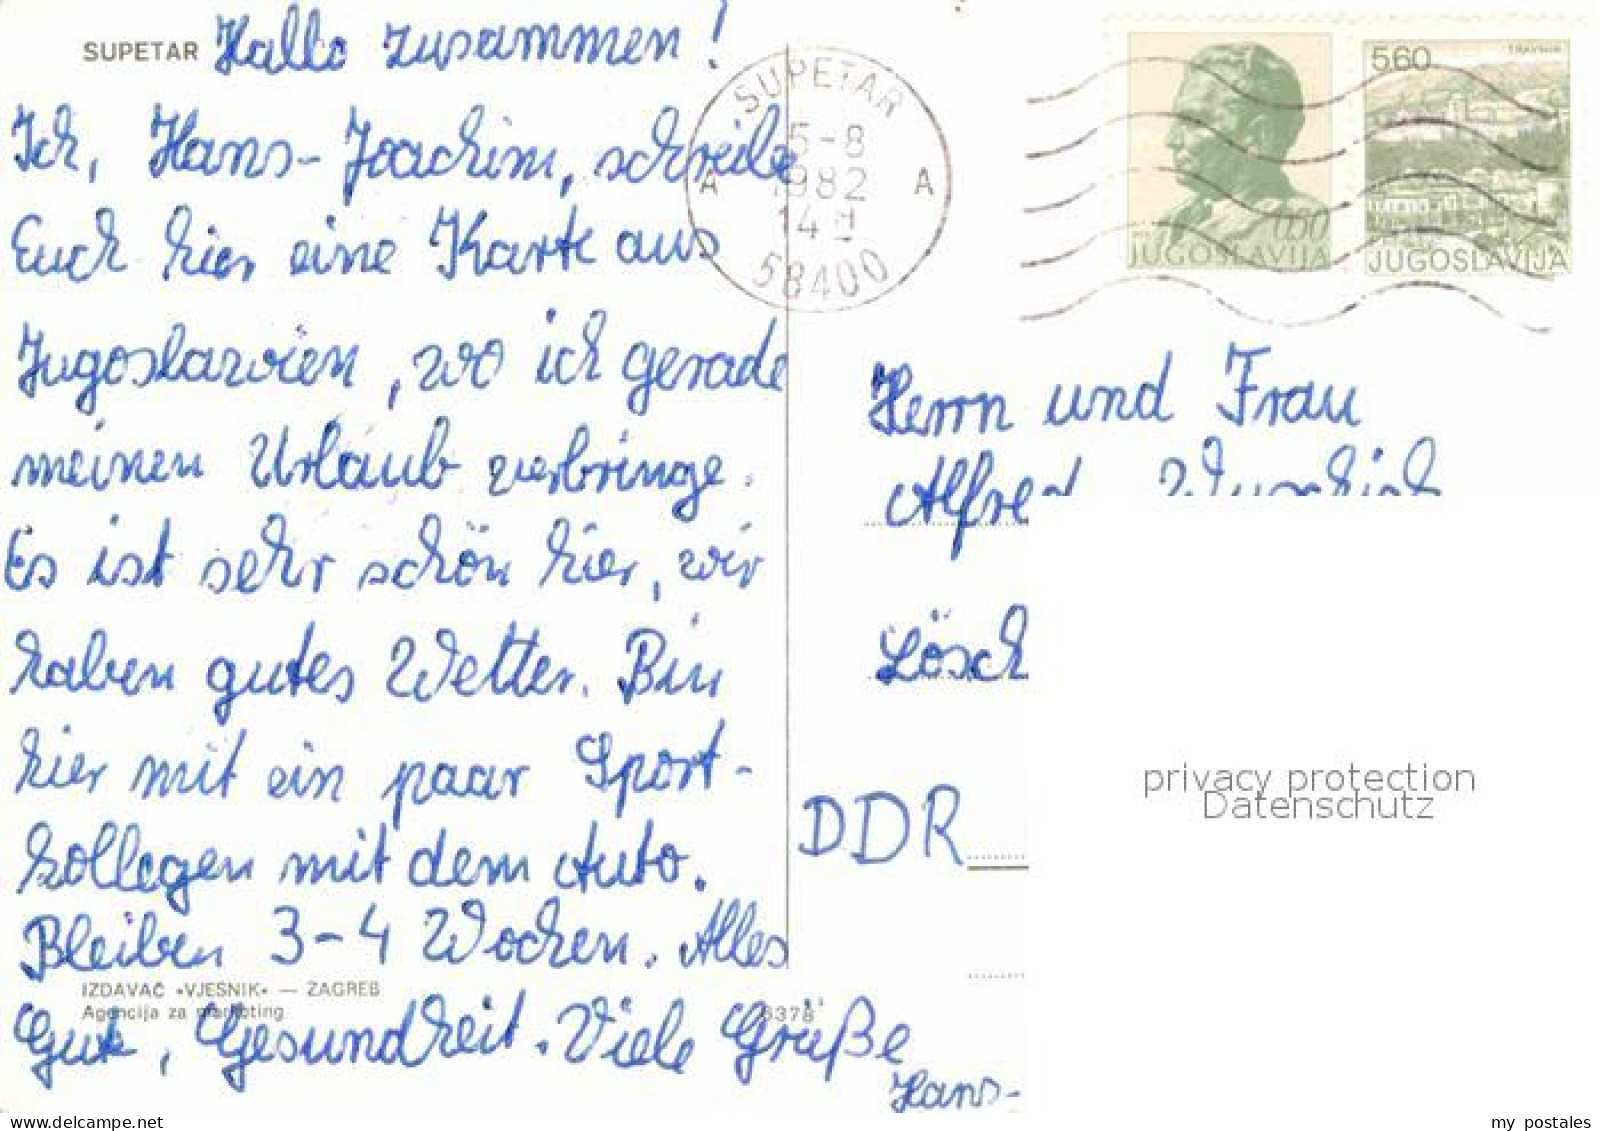 SUPETAR Hallo zusammen!
Ich, Hans-Joachim, schreibe
Euch hier eine Karte aus
Jugoslawien, wo ich gerade
meinen Urlaub verbringe.
Es ist sehr schön hier, wir
haben gutes Wetter. Bin
hier mit ein paar Sport-
kollegen mit dem Auto.
Bleiben 3-4 Wochen. Alles
IZDAVAČ «VJESNIK» — ZAGREB
Agencija za marketing
6378
Gute, Gesundheit. Viele Grüße
Hans-
SUPETAR
5-8
1982
14
A A
58400
0.60
JUGOSLAVIJA
5.60
TRAVNIK
JUGOSLAVIJA
Herrn und Frau
Alfred
Lösch
DDR
privacy protection
Datenschutz
my postales